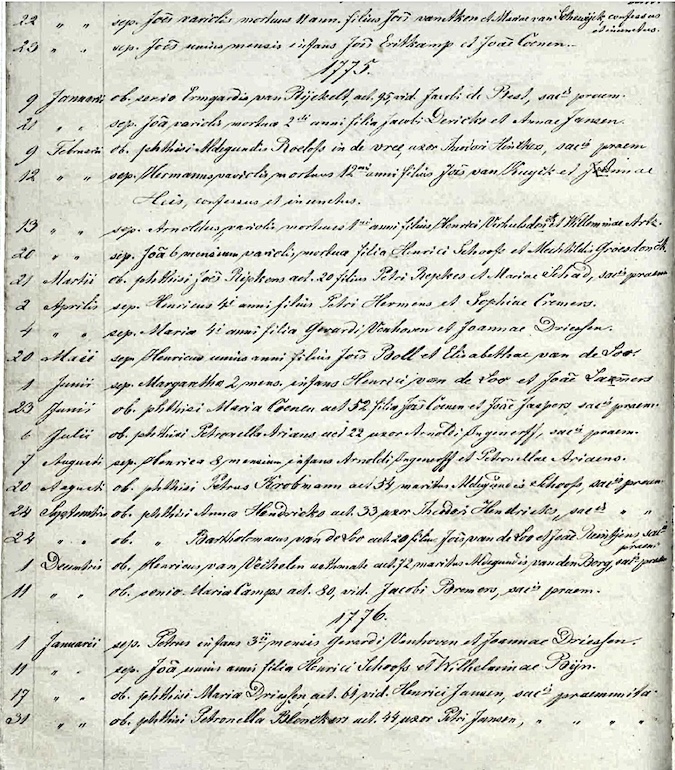 22 " " sep. Joẽs variolis mortuus 11 ann. filius Joĩs van Aken et Mariae van confessus
et inunctus.
23 " " sep. Joẽs unius mensis infans Joĩs Eritkamp et Joãe Coenen.
1775.
9 Januarii ob. senio Ermgardis van Rijckelt, aet. 95, vid. Jacobi de Best, sacis praem.
21 " " sep. Joã, variolis mortua 2di anni filia Jacobi Dericks et Annae Jansen.
9 Februarii ob. phthisi Aldegundis Roeloffs in de vree, uxor Theodori sacis praem
12 " " sep. Hermanus, variolis, mortuus 12mi anni filius Joĩs van Kuyik et Joannae
Heis, confessus et inunctus.
13 " " sep. Arnoldus, variolis, mortuus 1mi anni filius Henrici et Willeminae Artz.
20 " " sep. Joã 6 mensium, variolis, mortua filia Henrici Schooffs et Mechtildis Groesdonck
21 Martii ob. phthisi Joẽs Rijpkens aet. 20 filius Petri Repkes et Mariae sacis praem
2 Aprilis sep. Henricus 4i anni filius Petri Hermens et Sophiae Cremers.
4 " " sep. Maria 4i anni filia Gerardi Venhoven et Joannae Driessen.
20 Maii sep. Henricus unius anni filius Joĩs Boll et Elisabethae van de Loo.
1 Junii sep. Margaretha 2 mens. infans Henrici van de Loo et Joãe Lammers
23 Junii ob. phthisi Maria Coenen aet 52 filia Joĩs Coenen et Joãe Jaspers, sacis praem.
6 Julii ob. phthisi Petronella Arians aet 22 uxor Arnoldi Ingenorff, sacis praem.
7 Augusti sep. Henrica 8, mensium infans Arnoldi Ingenorff et Petronellae Ariaens.
20 Augusti ob. phthisi Petrus Koobmann aet 54, maritus Aldegundis Schooffs, sacis praem
24 Septembris ob. phthisi Anna Hendricks aet. 33 uxor Theodori Hendricks, sacis " "
24 " " ob. " Bartholomaeus van de Loo aet 20 filius Joĩs van de Loo et Joãe Reintjens sacis
praem
1 Decembris ob. Henricus van Vecholen asthmate aet. 72 maritus Aldegundis van den Berg, sacis praem
11 " " ob. senio Maria Camps aet. 80, vid. Jacobi Bremers, sacis praem.
1776.
1 Januarii sep. Petrus infans 3ii mensis Gerardi Venhoven et Joannae Driessen.
11 " " sep. Joã, unius anni filia Henrici Schooffs et Wilhelminae Rijn.
17 " " ob. phthisi Maria Driessen aet. 64, vid. Henrici Jansen, sacis praemunita.
31 " " ob. phthisi Petronella Blenckers aet. 44, uxor Petri Jansen, " " "